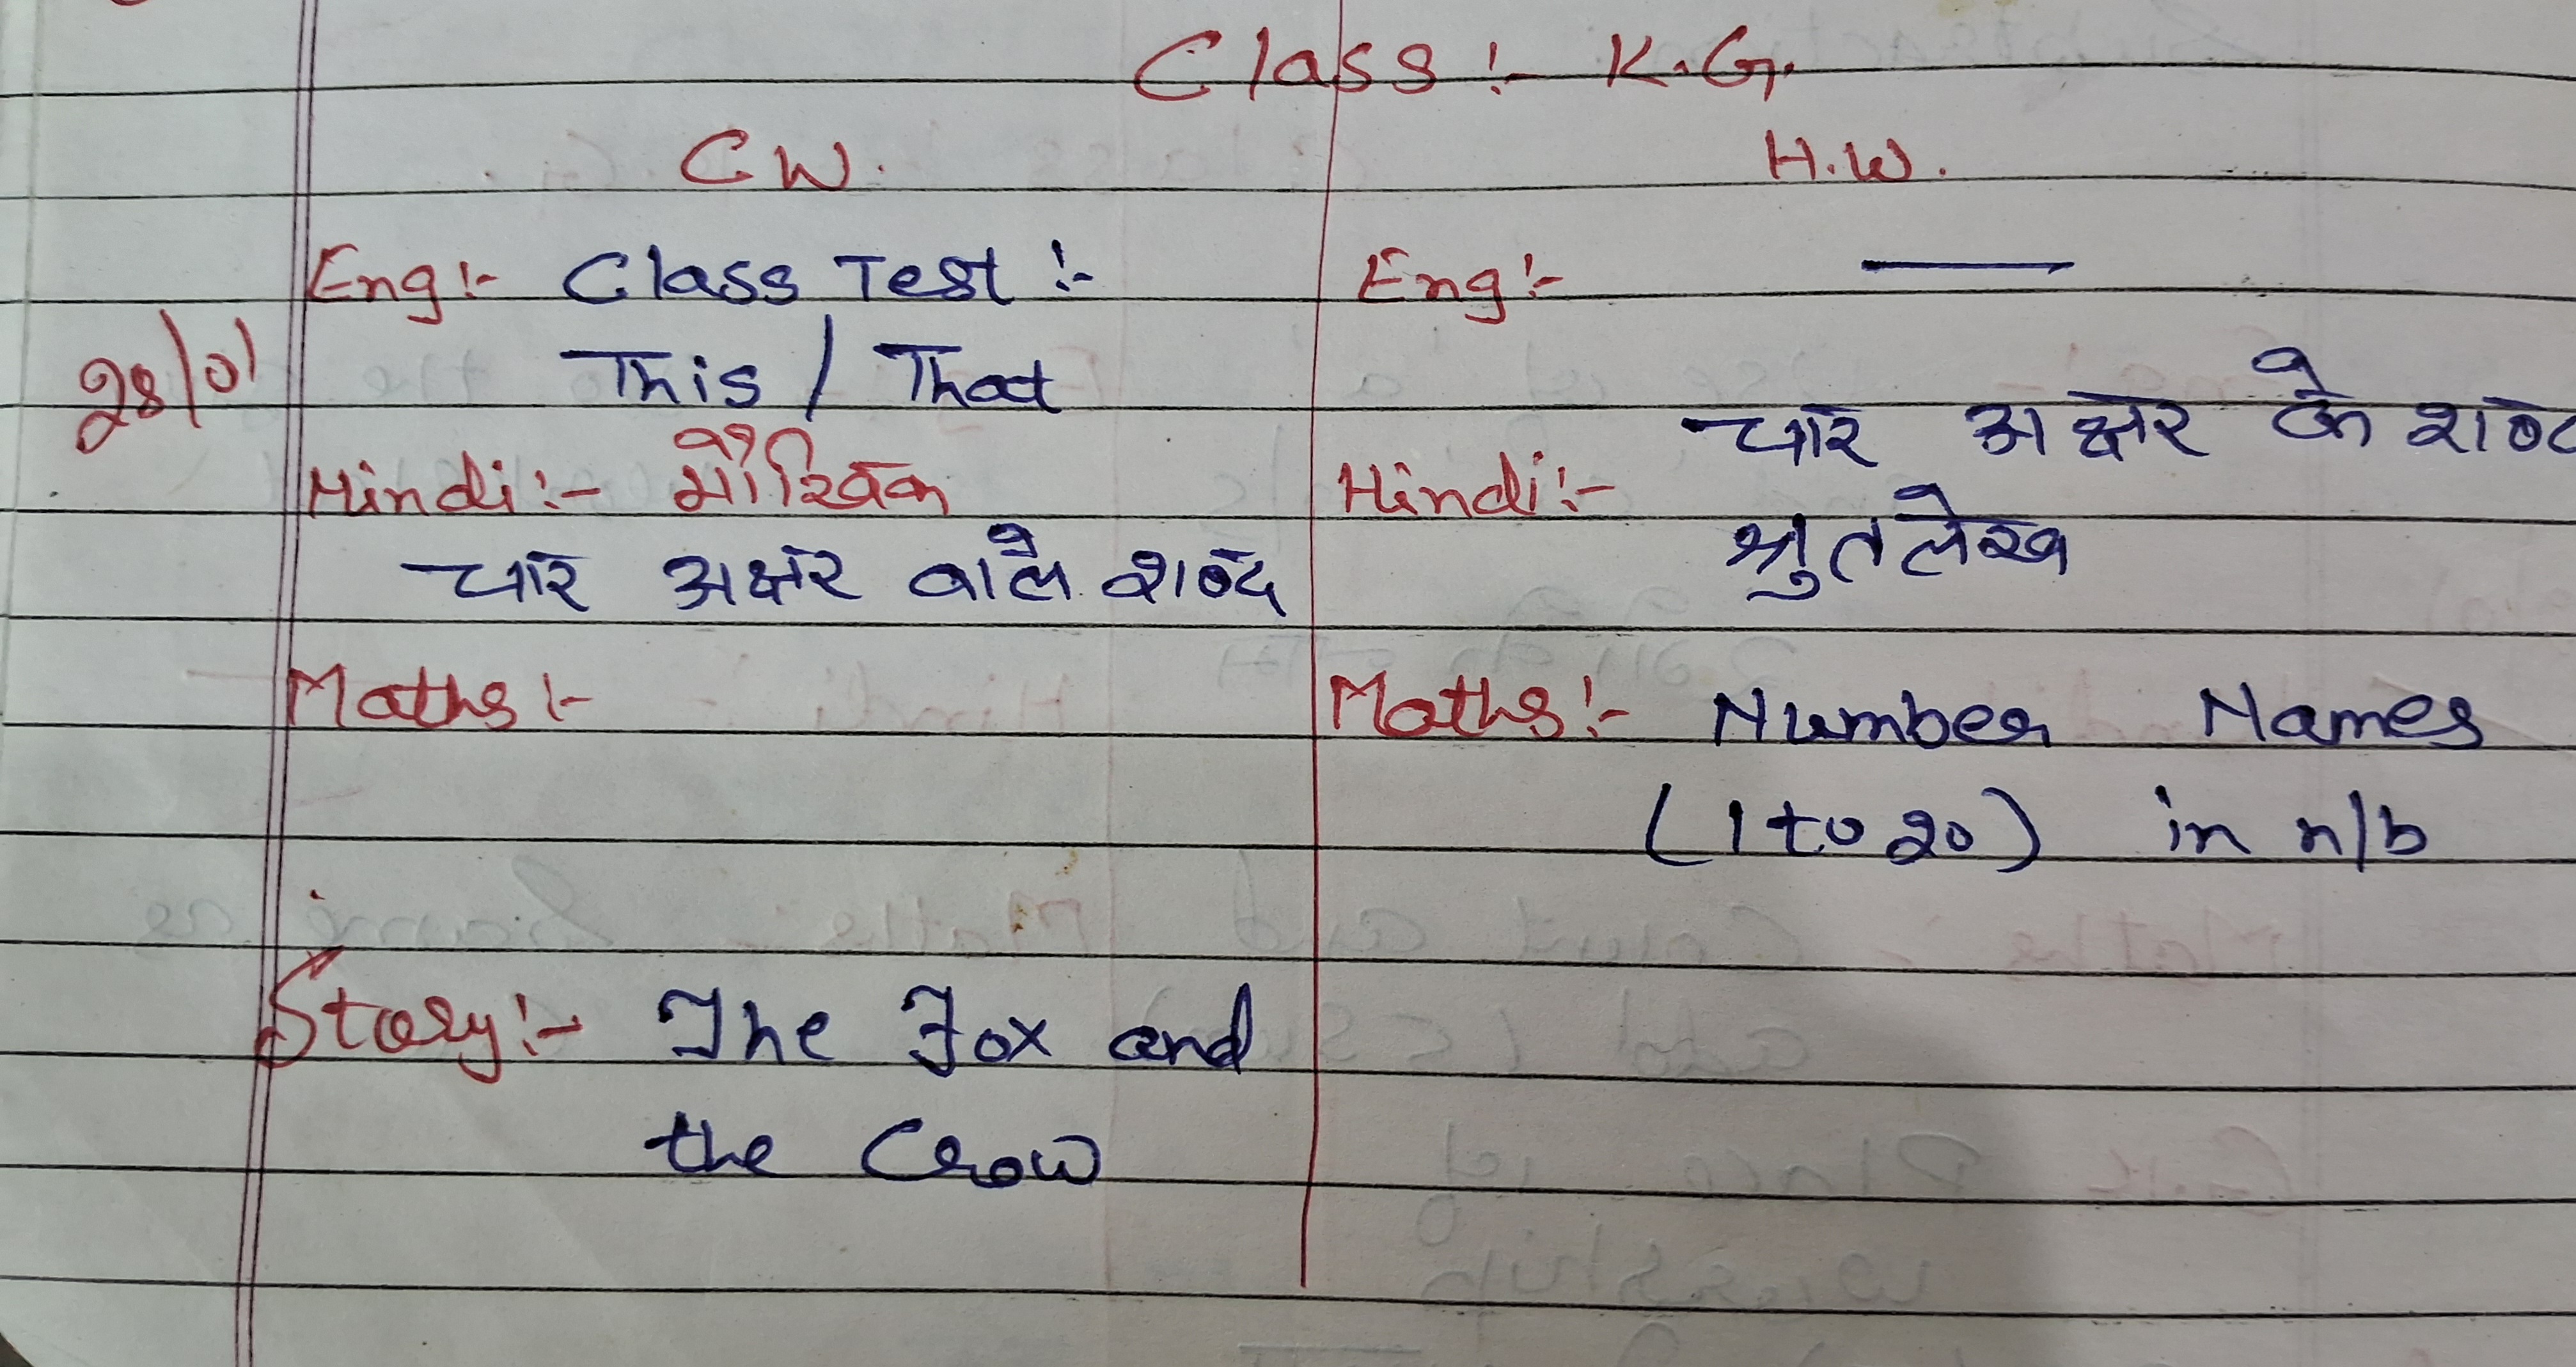 Class :- K.G.
C W.
H.W.
Eng :- Class Test :-
Eng :- —
28/01
This / That
Hindi :- मौखिक
चार अक्षर वाले शब्द
चार अक्षर के शब्द
Hindi :-
श्रुतलेख
Maths :-
Maths :- Number Names
(1 to 20) in n/b
Story :- The Fox and
the Crow